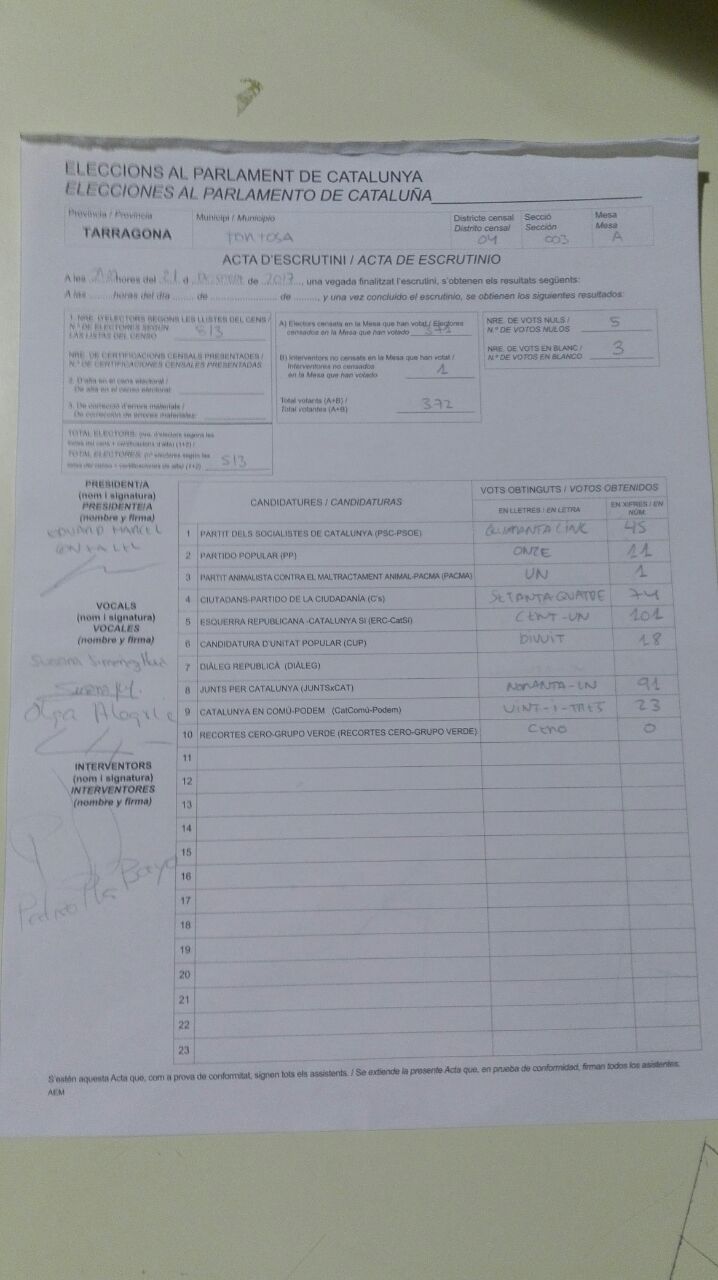 ELECCIONS AL PARLAMENT DE CATALUNYA
ELECCIONES AL PARLAMENTO DE CATALUÑA
Província / Provincia
TARRAGONA
Municipi / Municipio
TORTOSA
Districte censal
Distrito censal
04
Secció
Sección
003
Mesa
Mesa
A
ACTA D'ESCRUTINI / ACTA DE ESCRUTINIO
A les hores del 21 d de 2017, una vegada finalitzat l'escrutini, s'obtenen els resultats següents:
A las horas del día de de , y una vez concluido el escrutinio, se obtienen los siguientes resultados:
1. NRE. D'ELECTORS SEGONS LES LLISTES DEL CENS /
N.º DE ELECTORES SEGÚN
LAS LISTAS DEL CENSO 513
NRE. DE CERTIFICACIONS CENSALS PRESENTADES /
N.º DE CERTIFICACIONES CENSALES PRESENTADAS
2. D'alta en el cens electoral /
De alta en el censo electoral:
3. De correcció d'errors materials /
De corrección de errores materiales:
TOTAL ELECTORS:
TOTAL ELECTORES: 513
A) Electors censats en la Mesa que han votat / Electores
censados en la Mesa que han votado 371
B) Interventors no censats en la Mesa que han votat /
Interventores no censados
en la Mesa que han votado 1
Total votants (A+B) /
Total votantes (A+B) 372
NRE. DE VOTS NULS /
N.º DE VOTOS NULOS 5
NRE. DE VOTS EN BLANC /
N.º DE VOTOS EN BLANCO 3
PRESIDENT/A
(nom i signatura)
PRESIDENTE/A
(nombre y firma)
VOCALS
(nom i signatura)
VOCALES
(nombre y firma)
Susana
Olga Alegria
INTERVENTORS
(nom i signatura)
INTERVENTORES
(nombre y firma)
CANDIDATURES / CANDIDATURAS
VOTS OBTINGUTS / VOTOS OBTENIDOS
EN LLETRES / EN LETRA
EN XIFRES / EN NÚM.
1 PARTIT DELS SOCIALISTES DE CATALUNYA (PSC-PSOE) QUARANTA CINC 45
2 PARTIDO POPULAR (PP) ONZE 11
3 PARTIT ANIMALISTA CONTRA EL MALTRACTAMENT ANIMAL-PACMA (PACMA) UN 1
4 CIUTADANS-PARTIDO DE LA CIUDADANÍA (C's) SETANTA QUATRE 74
5 ESQUERRA REPUBLICANA -CATALUNYA SÍ (ERC-CatSí) CENT-UN 101
6 CANDIDATURA D'UNITAT POPULAR (CUP) DIVUIT 18
7 DIÀLEG REPUBLICÀ (DIÀLEG)
8 JUNTS PER CATALUNYA (JUNTSxCAT) NORANTA-UN 91
9 CATALUNYA EN COMÚ-PODEM (CatComú-Podem) VINT-I-TRES 23
10 RECORTES CERO-GRUPO VERDE (RECORTES CERO-GRUPO VERDE) CERO 0
11
12
13
14
15
16
17
18
19
20
21
22
23
S'estén aquesta Acta que, com a prova de conformitat, signen tots els assistents. / Se extiende la presente Acta que, en prueba de conformidad, firman todos los asistentes.
AEM